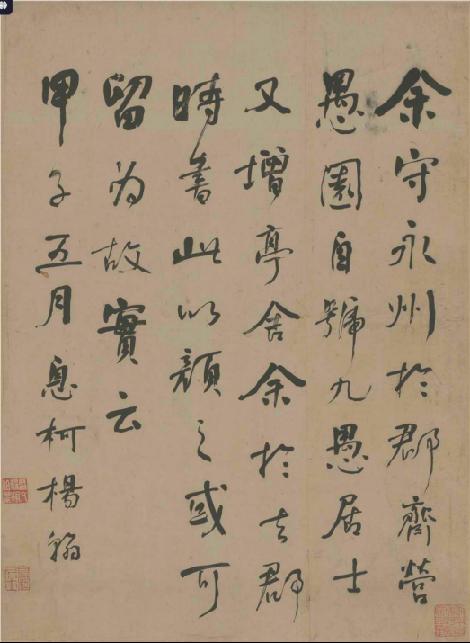 余守永州於郡齊營
愚園自號九愚居士
又增亭舍余於去郡
時書此以顏之或可
留為故實云
甲子五月息柯楊翰